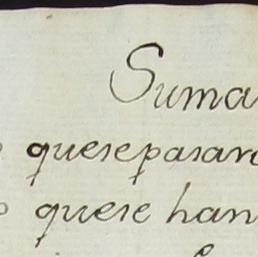 Suma
o quesepasara
o quese han